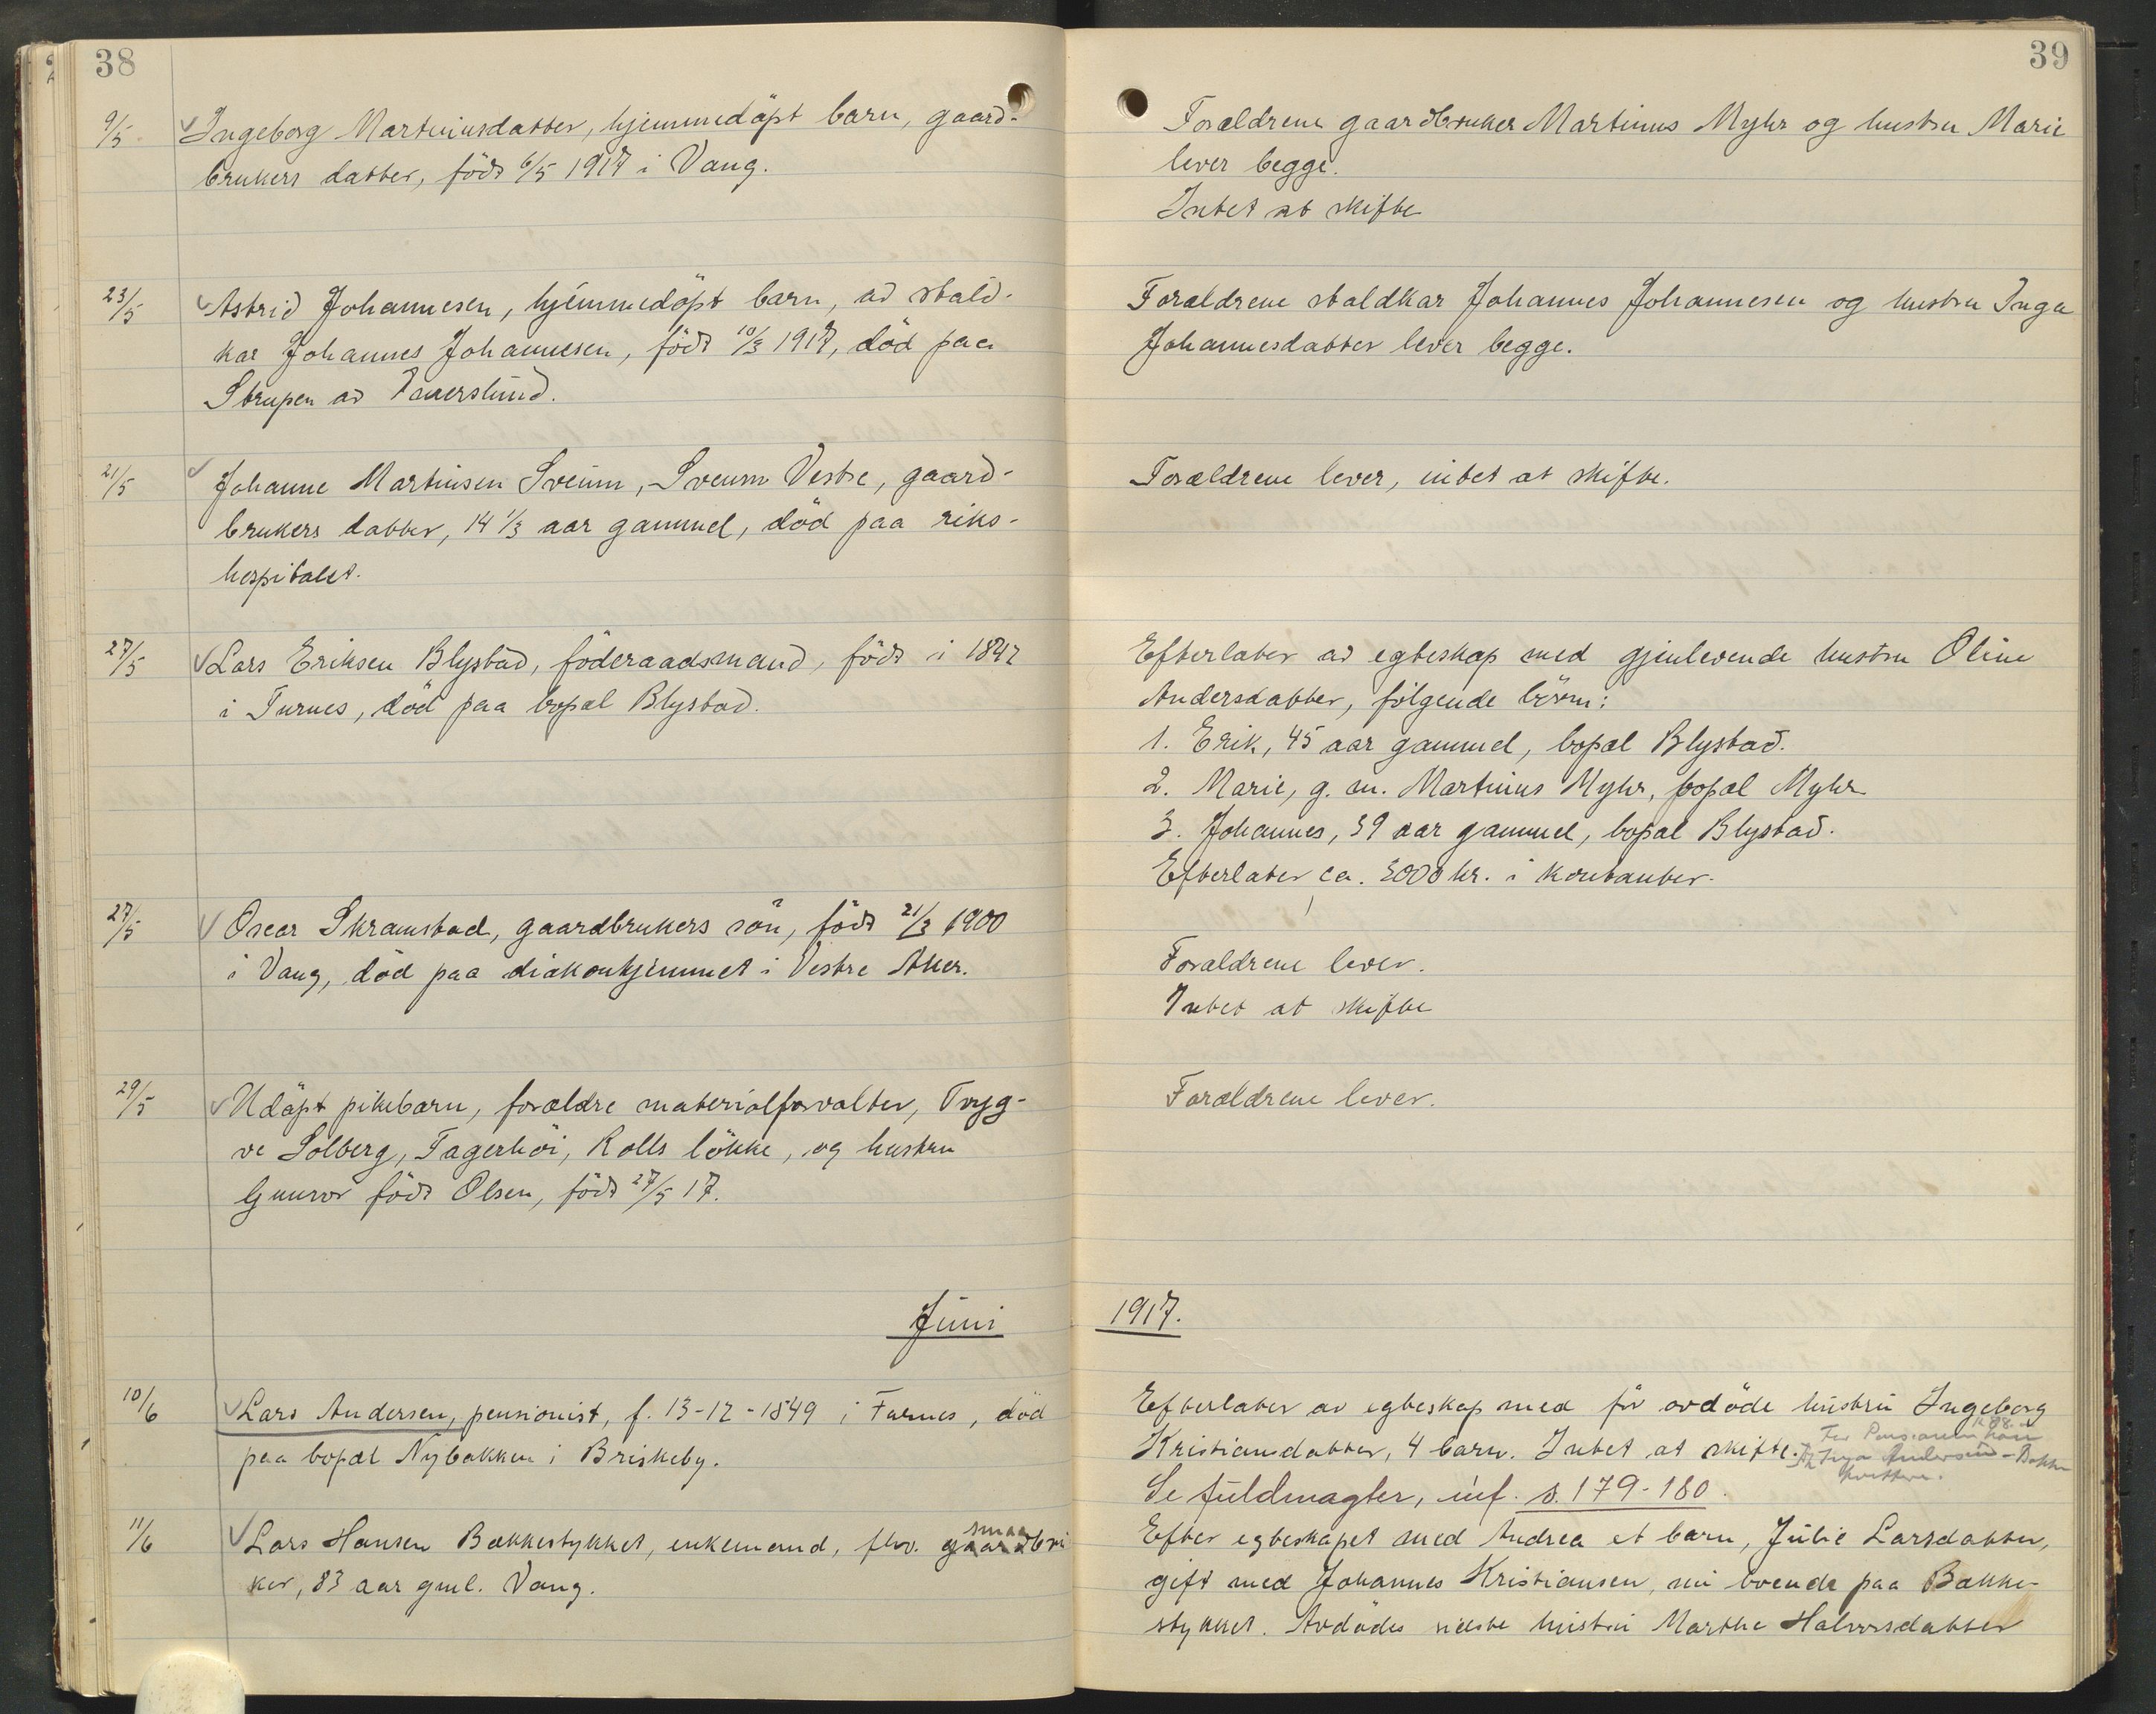 38
9/5 Ingeborg Martinusdatter, hjemmedöpt barn, gaard-
brukers datter, född 6/5 1917 i Vang.
23/5 Astrid Johannesen, hjemmedöpt barn, av stald-
kar Johannes Johannesen, född 10/3 1917, död paa
Strupen av
21/5 Johanne Martinsen Sveum, Sveum Vestre, gaard-
brukers datter, 14 1/3 aar gammel, död paa riks-
hospitalet.
27/5 Lars Eriksen Blystad, föderaadsmand, född i 1842
i Furnes, död paa bopæl Blystad.
27/5 Oscar Skramstad, gaardbrukers sön, född 21/3 1900
i Vang, död paa diakonhjemmet i Vestre Aker.
29/5 Udöpt pikebarn, forældre materialforvalter, Tryg-
ve Solberg, Fagerhöi, Rolls lökke, og hustru
Gunvor född Olsen, född 27/5 17.
Juni
10/6 Lars Andersen, pensionist, f. 13-12-1849 i Furnes, död
paa bopæl Nybakken i Briskeby.
11/6 Lars Hansen Bakkestykket, enkemand, fhv. gaardbru
smaa
ker, 83 aar gml. Vang.
39
Forældrene gaardbruker Martinus Myhr og hustru Marie
lever begge.
Intet at skifte
Forældrene staldkar Johannes Johannesen og hustru Inga
Johannesdatter lever begge.
Forældrene lever, intet at skifte.
Efterlater av egteskap med gjenlevende hustru Oline
Andersdatter, følgende börn:
1. Erik, 45 aar gammel, bopæl Blystad.
2. Marie, g. m. Martinus Myhr, bopæl Myhr
3. Johannes, 39 aar gammel, bopæl Blystad.
Efterlater ca. 3000 kr. i kontanter.
Forældrene lever.
Intet at skifte
Forældrene lever.
1917.
Efterlater av egteskap med för avdöde hustru Ingeborg
Kristiansdatter, 4 barn. Intet at skifte.
Se fuldmagter, inf. s. 179-180.
Efter egteskapet med Andrea et barn, Julie Larsdatter,
gift med Johannes Kristiansen, nu boende paa Bakke-
stykket. Avdödes sidste hustru Marthe Halvorsdatter